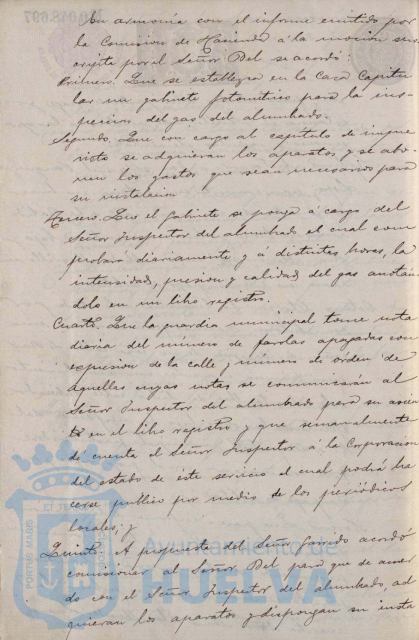 En armonía con el informe emitido por
la Comision de Hacienda á la mocion sus
cripta por el Señor Del se acordó:
Primero. Que se establezca en la Casa Capitu
lar un gabinete fotométrico para la ins-
peccion del gas del alumbrado.
Segundo. Que con cargo al capitulo de impre
vistos se adquieran los aparatos y se abo-
nen los gastos que sean necesarios para
su instalacion
Tercero. Que el Gabinete se ponga á cargo del
Señor Inspector del alumbrado el cual com
probará diariamente y á distintas horas, la
intensidad, presion y calidad del gas anotán
dolo en un libro registro.
Cuarto. Que la guardia municipal tome nota
diaria del número de farolas apagadas con
expresion de la calle y número de órden de
aquellas cuyas notas se comunicarán al
Señor Inspector del alumbrado para su asien
to en el libro registro y que semanalmente
dé cuenta el Señor Inspector á la Corporacion
del estado de este servicio el cual podrá ha
cerse publico por medio de los periódicos
locales; y
Quinto. A propuesta del Señor Garrido acordó
comisionar al Señor Del para que de acuer
do con el Señor Inspector del alumbrado, ad
quieran los aparatos y dispongan su insta
PORTUS MARIS
Ayuntamiento de
HUELVA